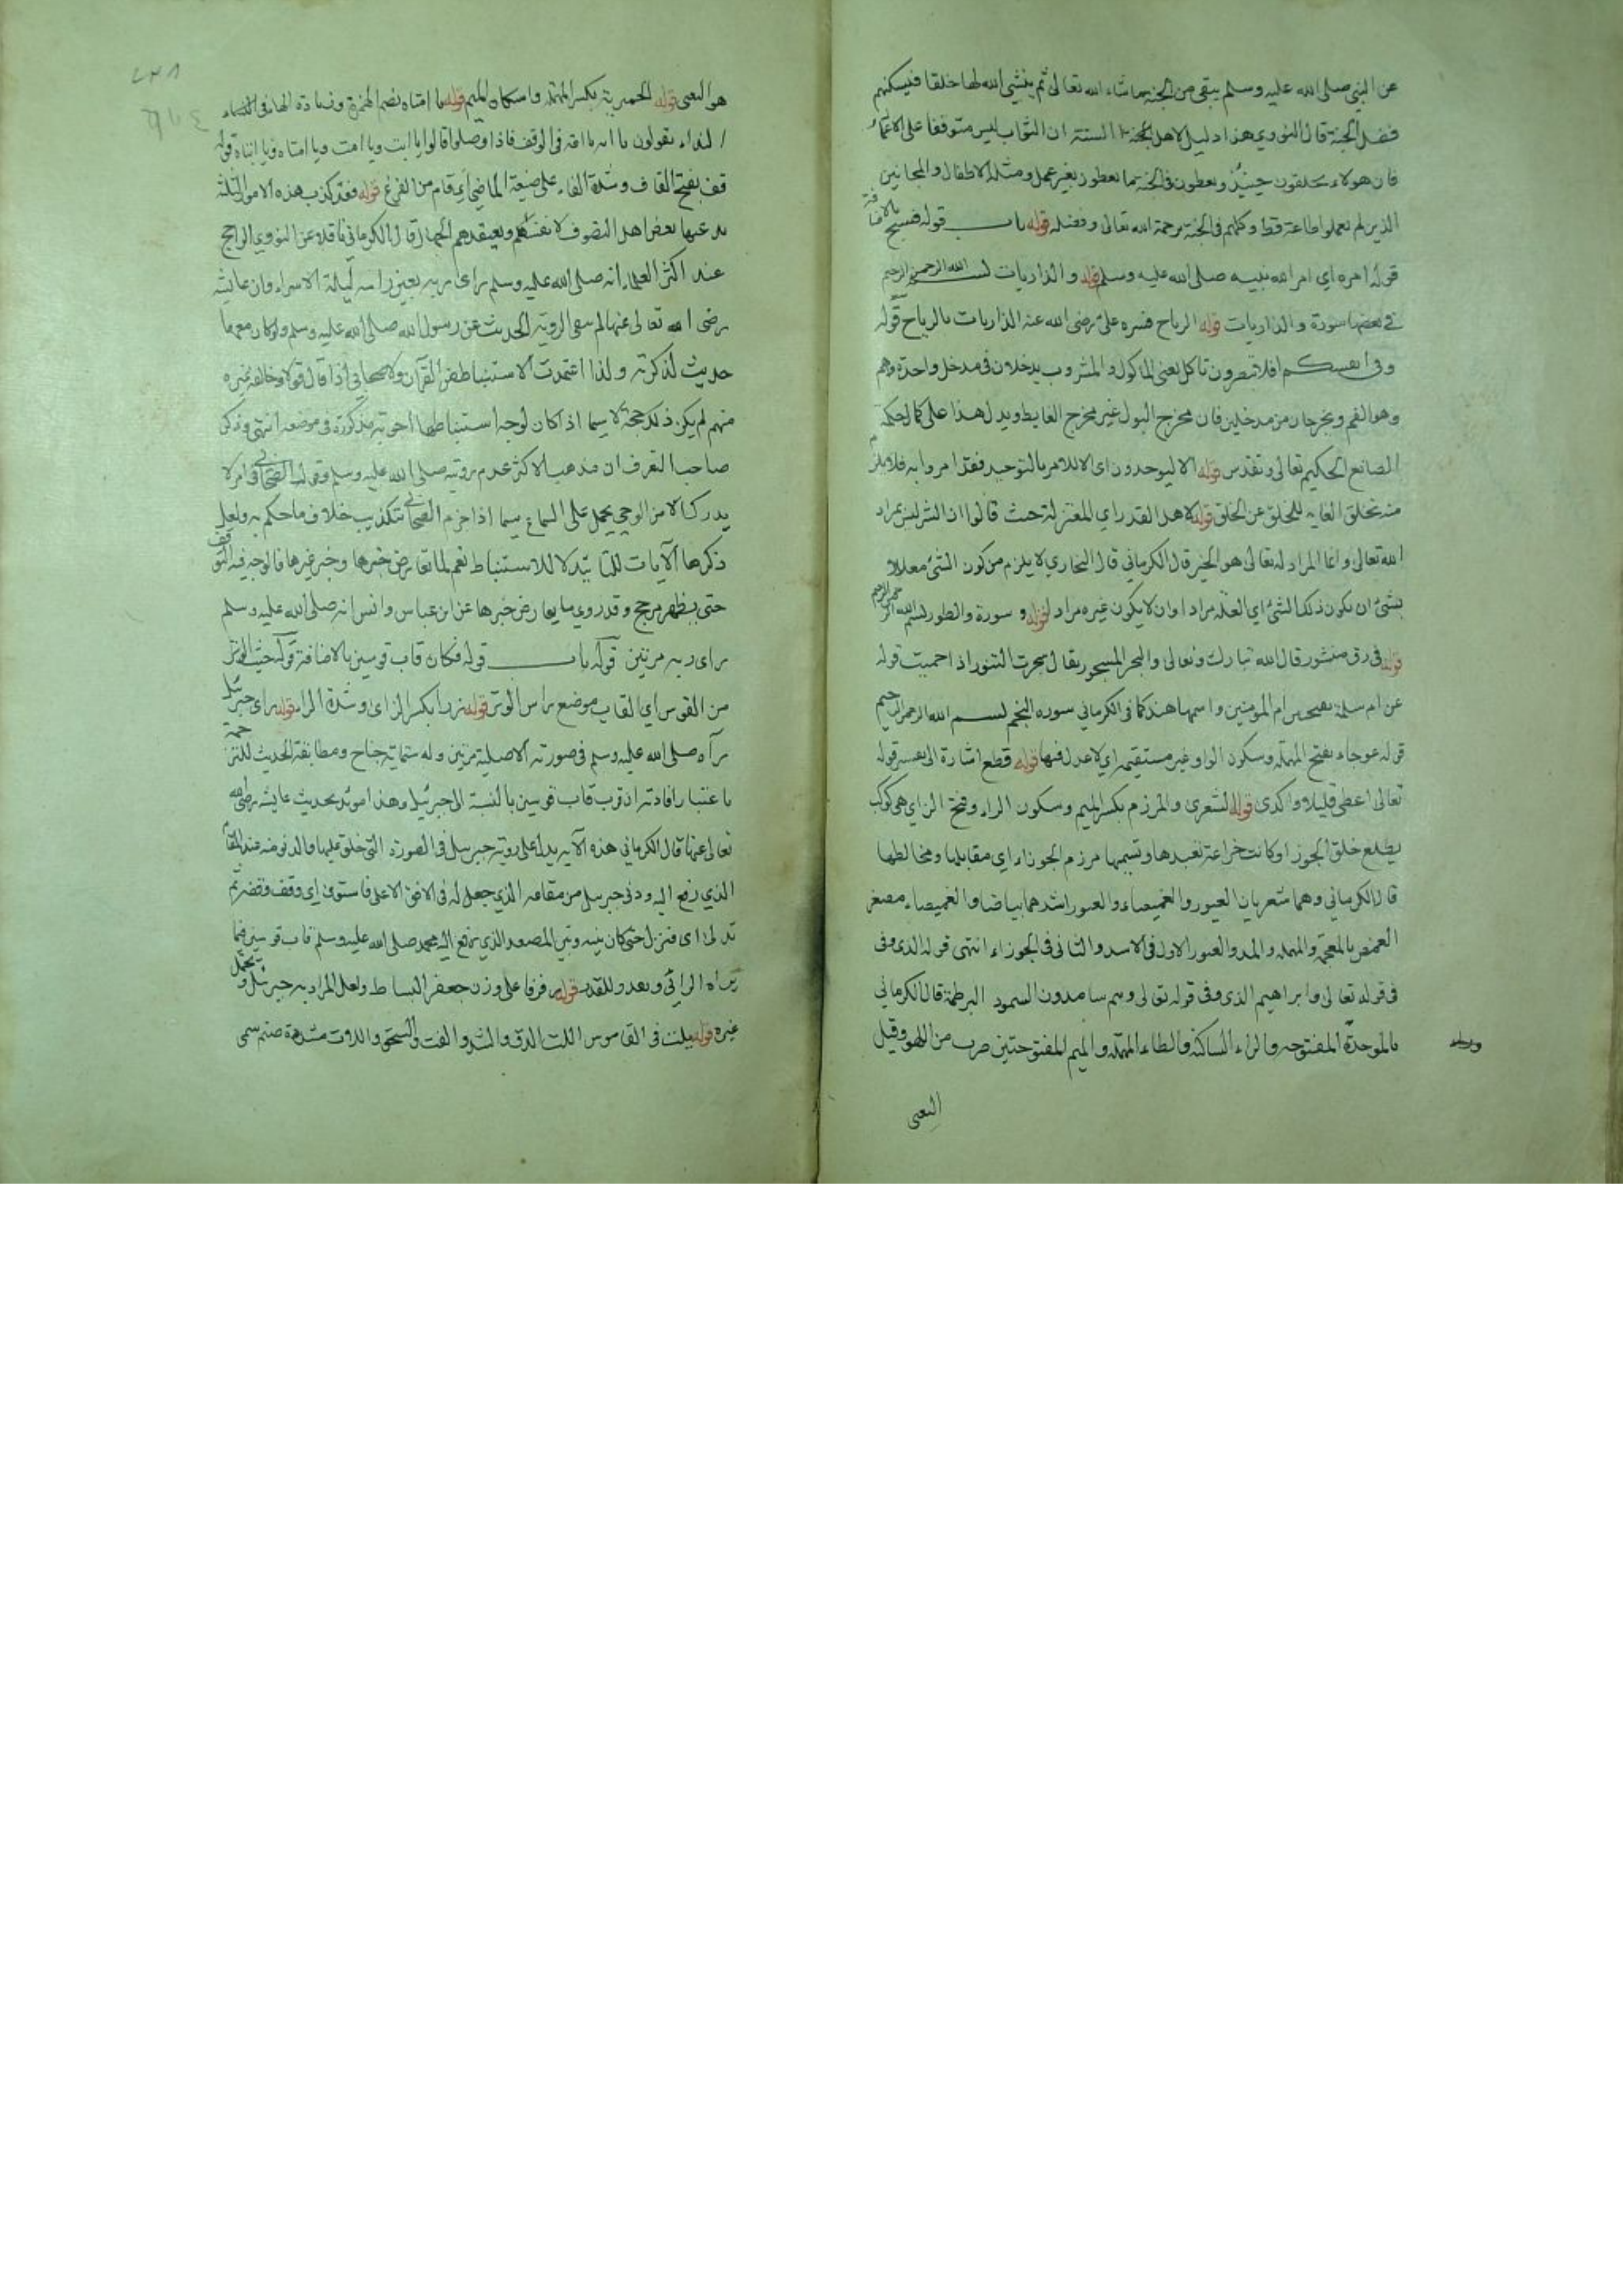 عن النبي صلى الله عليه وسلم يبقى من الجنة ما شاء الله تعالى ثم ينشئ الله لها خلقا فيسكنهم
فضل الجنة قال النووي هذا دليل لاهل السنة ان الثواب ليس متوقفا على الاعمال
فان هولاء يخلقون حينئذ ويعطون في الجنة ما يعطون بغير عمل ومثله الاطفال والمجانين
الذين لم يعملوا طاعة قط وكلهم في الجنة برحمة الله تعالى وفضله قوله باب قوله فسبح بالاضافة
قوله امره اي امر الله نبيه صلى الله عليه وسلم قوله والذاريات بسم الله الرحمن الرحيم
في بعضها سورة والذاريات قوله الرياح فسره علي رضي الله عنه الذاريات بالرياح قوله
وفي انفسكم افلا تبصرون تاكل يعني الماكول والمشروب يدخلان في مدخل واحد وهم
وهو الفم ويخرجان من مدخلين فان مخرج البول غير مخرج الغايط ويدل هذا على كمال حكمة
الصانع الحكيم تعالى وتقدس قوله الا ليوحدون اي الا للامر بالتوحيد فقد امروا به فلا يلزم
منه تخلق الغاية للخلق عن الخلق قوله لاهل القدر اي المعتزلة حيث قالوا ان الشر ليس بمراد
الله تعالى وانما المراد له تعالى هو الخير قال الكرماني قال البخاري لا يلزم من كون الشئ معللا
بشئ ان يكون ذلك الشئ اي العلة مرادا وان لا يكون غيره مراد قوله و سورة والطور بسم الله الرحمن الرحيم
قوله في رق منشور قال الله تبارك وتعالى والبحر المسجور يقال سجرت التنور اذا حميت قوله
عن ام سلمة بفتحتين ام المومنين واسمها هند كما في الكرماني سورة النجم بسم الله الرحمن الرحيم
قوله عوجاء بفتح المهملة وسكون الواو غير مستقيمة اي لا عدل فيها قوله قطع اشارة الى تفسير قوله
تعالى اعطى قليلا واكدى قوله الشعرى والمرزم بكسر الميم وسكون الراء وفتح الزاي هي كوكب
يطلع خلف الجوزا وكانت خزاعة تعبدها وتسميها مرزم الجوزاء اي مقابلها ومخالطها
قال الكرماني وهما شعريان العبور والغميصاء والعبور اشدهما بياضا والغميصاء مصغر
الغمص بالمعجمة والمهملة والمد والعبور الاول في الاسد والثاني في الجوزاء انتهى قوله الذي وفى
في قوله تعالى وابراهيم الذي وفى قوله تعالى وهم سامدون السمود البرطمة قال الكرماني
بالموحدة المفتوحة والراء الساكنة والطاء المهملة والميم المفتوحتين ضرب من اللهو وقيل
التغني
هو التغني قوله الحميرية بكسر المهملة واسكان الميم قوله يا امتاه بضم الهمزة وزيادة الهاء في
النداء يقولون يا ابه يا امه في الوقف فاذا وصلوا قالوا يا ابت ويا امت ويا امتاه ويا ابتاه قوله
قف بفتح القاف وشدة الفاء على صيغة الماضي اي قام من الفزع قوله فقد كذب هذه الامور الثلثة
يدعيها بعض اهل التصوف لانفسهم ويعتقدهم الجهال قال الكرماني ناقلا عن النووي الراجح
عند اكثر العلماء انه صلى الله عليه وسلم راى ربه بعين راسه ليلة الاسراء وان عايشة
رضي الله تعالى عنها لم تنف الروية الحديث عن رسول الله صلى الله عليه وسلم ولو كان معها
حديث لذكرته ولذا اعتمدت الاستنباط من القرآن والصحابي اذا قال قولا وخالفه غيره
منهم لم يكن ذلك حجة لا سيما اذا كان لوجه استنباطها اجوبة مذكورة في موضعه انتهى وذكر
صاحب التعرف ان مذهب الاكثر عدم رويته صلى الله عليه وسلم وقول الصحابي في امر لا
يدرك الا من الوحي يحمل على السماع سيما اذا جزم الصحابي بتكذيب خلاف ما حكم به ولعل
ذكرها الآيات للتاييد لا للاستنباط نعم لما تعارض خبرها وخبر غيرها فالوجه فيه التوقف
حتى يظهر مرجح وقد روي ما يعارض خبرها عن ابن عباس وانس انه صلى الله عليه وسلم
راى ربه مرتين قوله باب قوله فكان قاب قوسين بالاضافة قوله حيث الوتر
من القوس اي القاب موضع راس الوتر قوله زرا بكسر الزاي وشدة الراء قوله راى جبرئيل
رآه صلى الله عليه وسلم في صورته الاصلية مرتين وله ستماية جناح ومطابقة الحديث للترجمة
باعتبار افادته ان قرب قاب قوسين بالنسبة الى جبرئيل وهذا مويد بحديث عايشة رضي الله
تعالى عنها قال الكرماني هذه الآية يدل على روية جبرئيل في الصورة التي خلق عليها والدنو منه عند المقام
الذي رفع اليه ودنى جبرئيل من مقامه الذي جعل له في الافق الاعلى فاستوى اي وقف وقصر ثم
تدلى اي فنزل حتى كان بينه وبين المصعد الذي رفع اليه محمد صلى الله عليه وسلم قاب قوسين فيما
يراه الرائي قوله رفرفا على وزن جعفر البساط ولعل المراد به جبرئيل ويحتمل
غيره قوله يلت في القاموس اللت الدق والشد والفت والسحق واللات مشددة صنم سمي